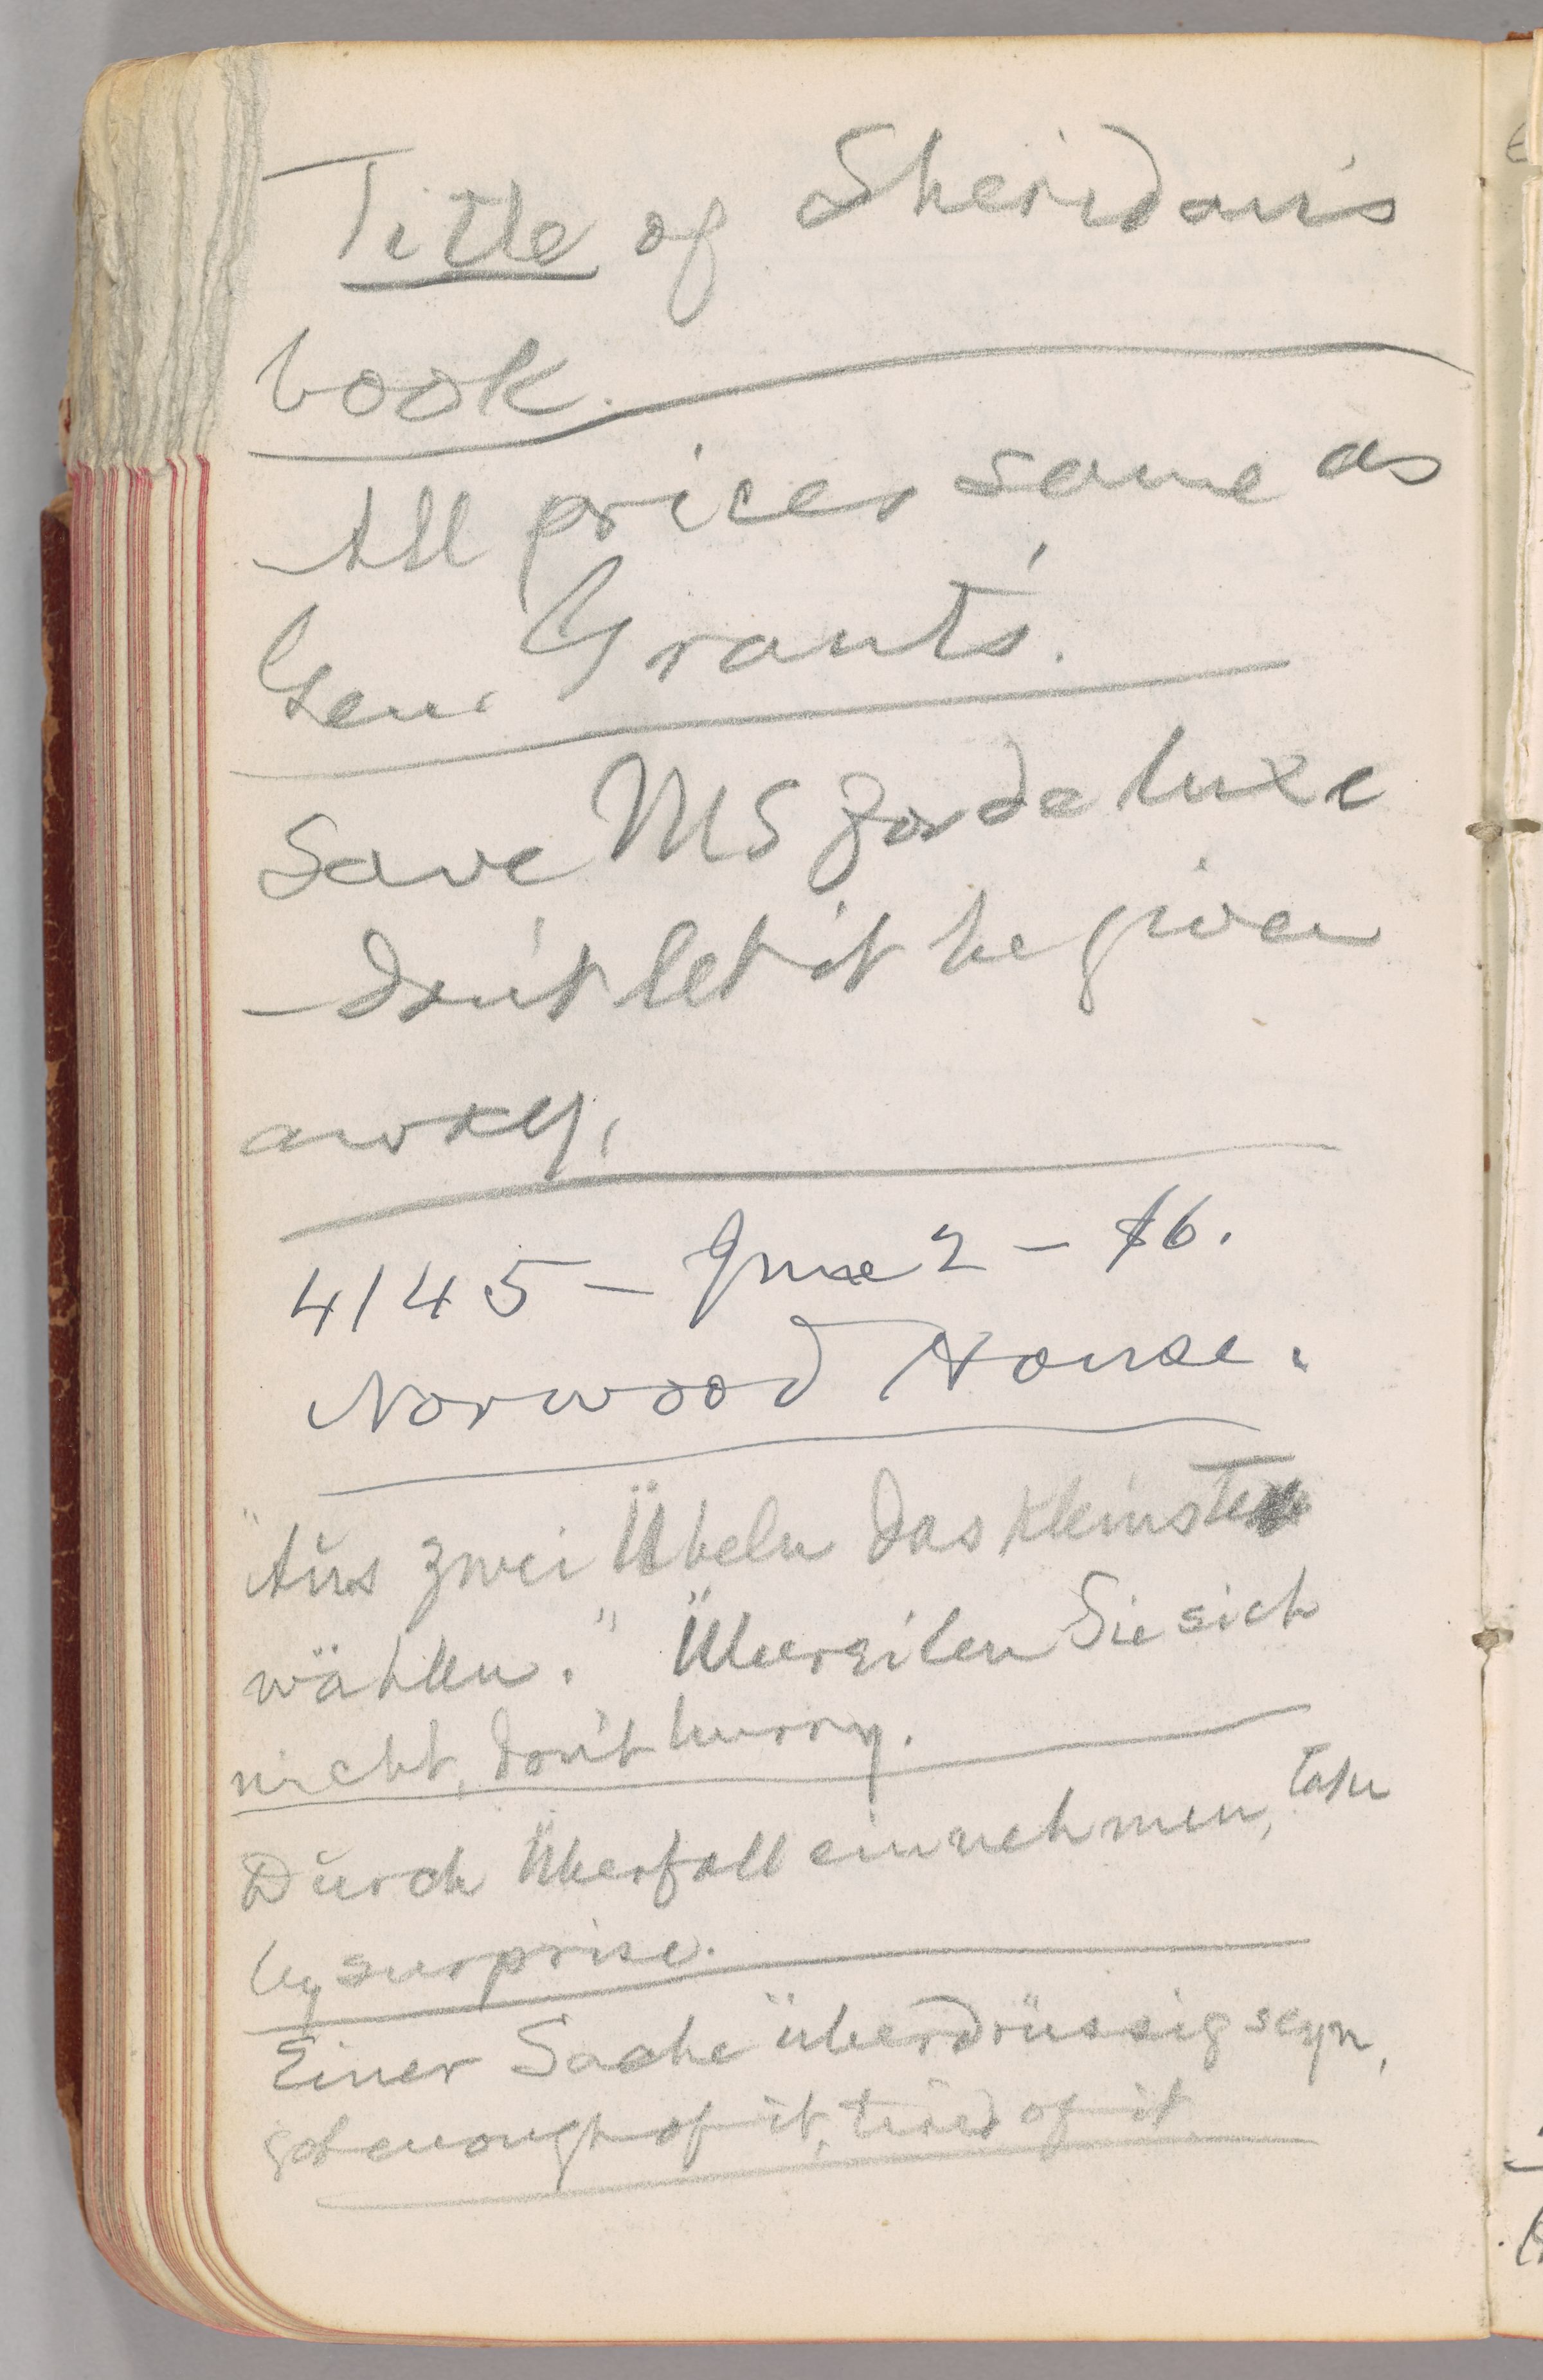 Title of Sheridan's
book.
All prices same as
Gen. Grant's.
Save MS for de luxe
—don't let it be given
away.
4145 — June 2 — 86.
Norwood House.
"Aus zwei Übeln das kleinste
wählen." Übereilen Sie sich
nicht, don't hurry.
Durch Überfall einnehmen, take
by surprise.
Einer Sache überdrüssig seyn,
got enough of it, tired of it.